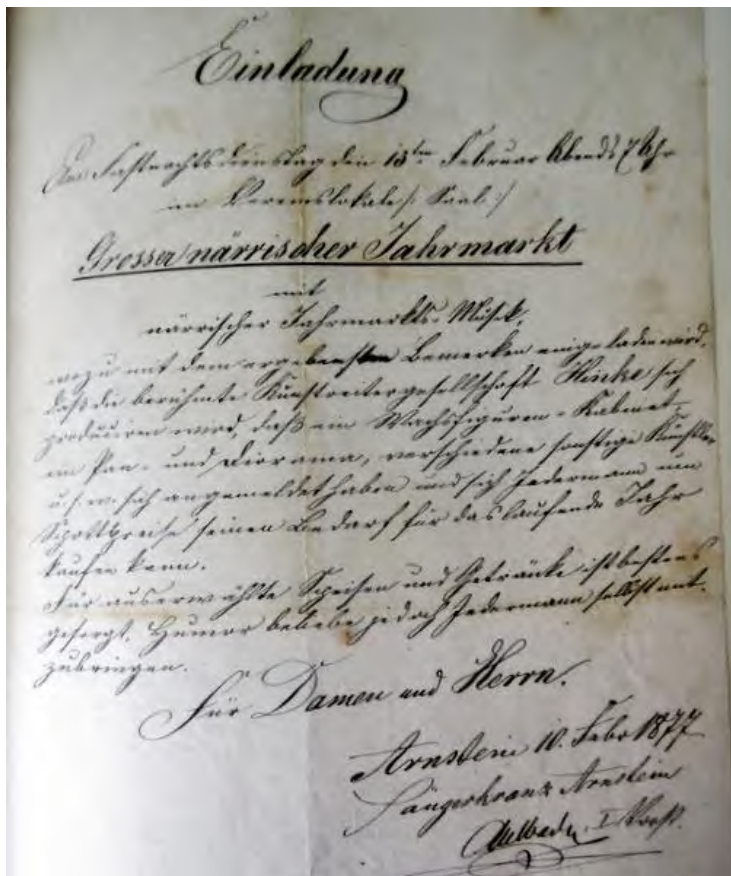 Einladung
Am Fastnachtsdienstag den 13ten Februar Abends 7 Uhr
im Vereinslokale /: Saal :/
Grosser närrischer Jahrmarkt
mit
närrischer Jahrmarkts-Musik,
wozu mit dem ergebensten Bemerken eingeladen wird,
daß die berühmte Kunstreitergesellschaft Hinke sich
produciren wird, daß ein Wachsfiguren-Kabinet,
ein Pan- und Diorama, verschiedene sonstige Künstler
u.s.w. sich angemeldet haben und sich Jedermann um
Spottpreise seinen Bedarf für das laufende Jahr
kaufen kann.
Für auserwählte Speisen und Getränke ist bestens
gesorgt, Humor beliebe jedoch Jedermann selbst mit-
zubringen.
Für Damen und Herrn.
Arnstein 10. Febr 1877
Sängerkranz Arnstein
I Vorst.